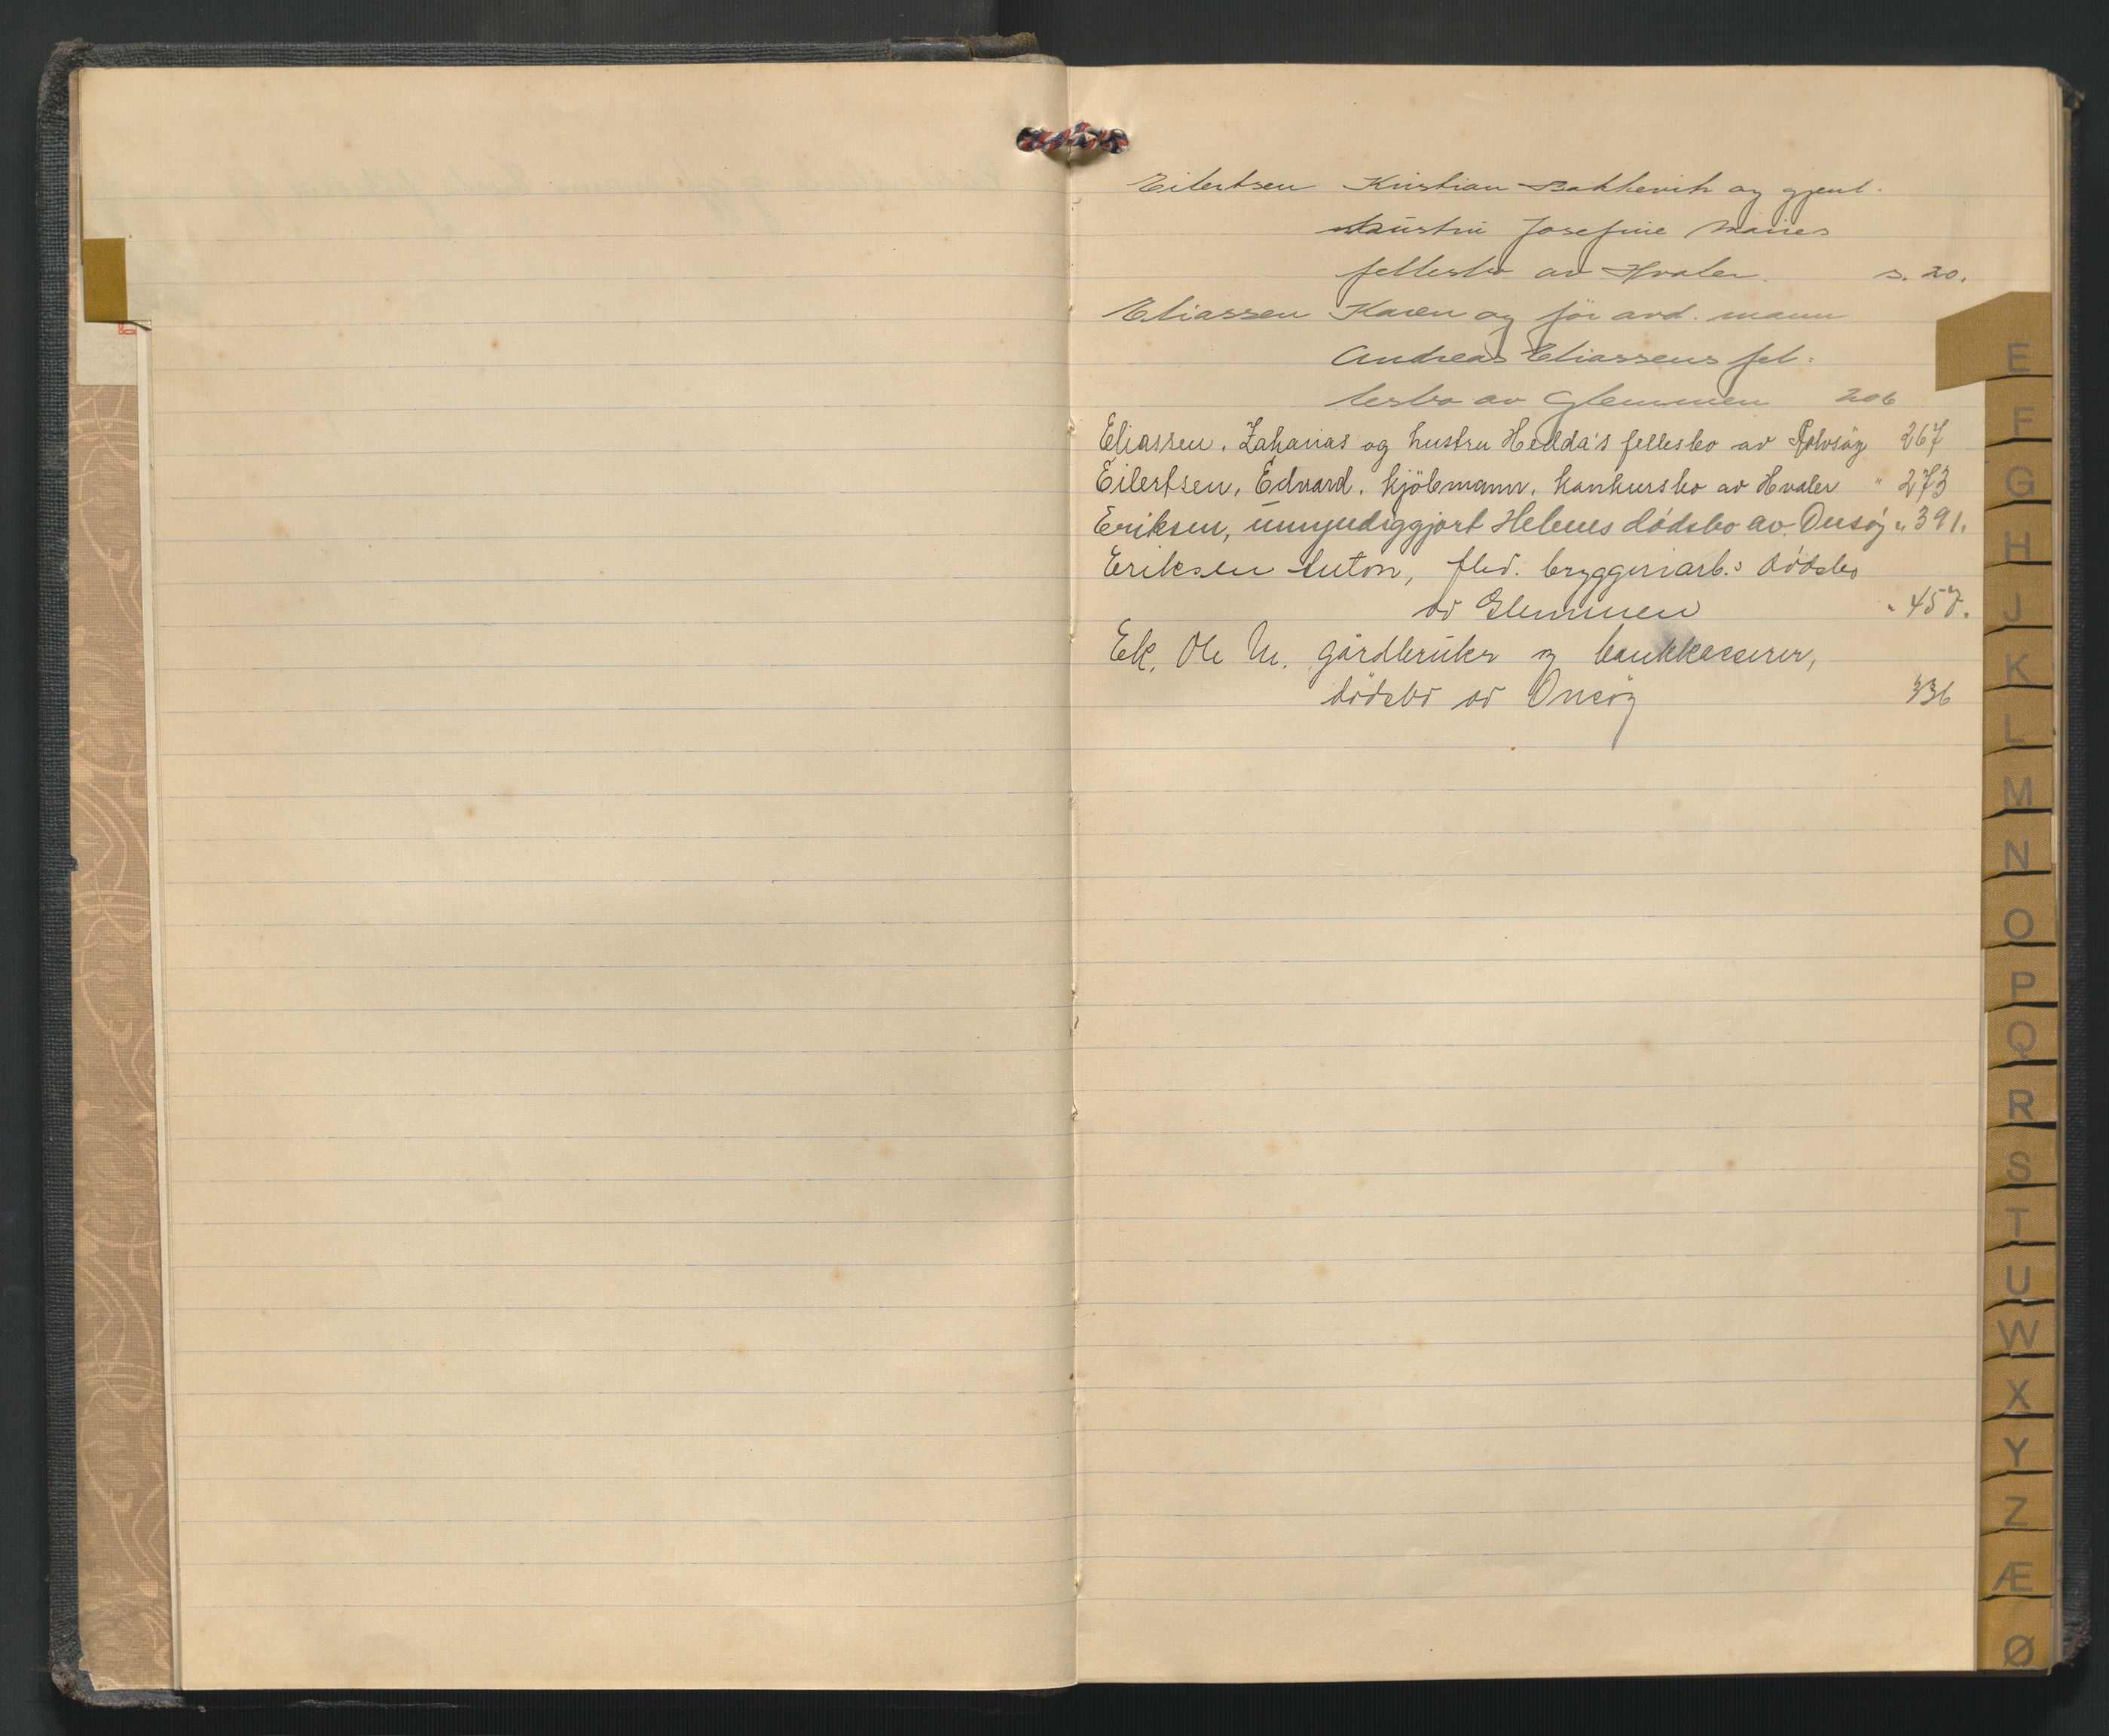 Eilertsen Kristian Bakkevik og gjenl.
hustru Josefine Maries
fellesbo av Hvaler. s. 20.
Eliassen Karen og før avd. mann
Andreas Eliassens fel=
lesbo av Glemmen 206
Eliassen, Zakarias og hustru Hedda's fellesbo av Rolvsøy 267
Eilertsen, Edvard. kjöbmann, konkursbo av Hvaler " 273
Eriksen, umyndiggjort Helenes dödsbo av Onsøy " 391.
Eriksen Anton, flvd. bryggeriarb.s dödsbo
av Glemmen " 457.
Ek, Ole M. gårdbruker og bankkasserer,
dödsbo av Onsøy 336
E
F
G
H
J
K
L
M
N
O
P
Q
R
S
T
U
W
X
Y
Z
Æ
Ø